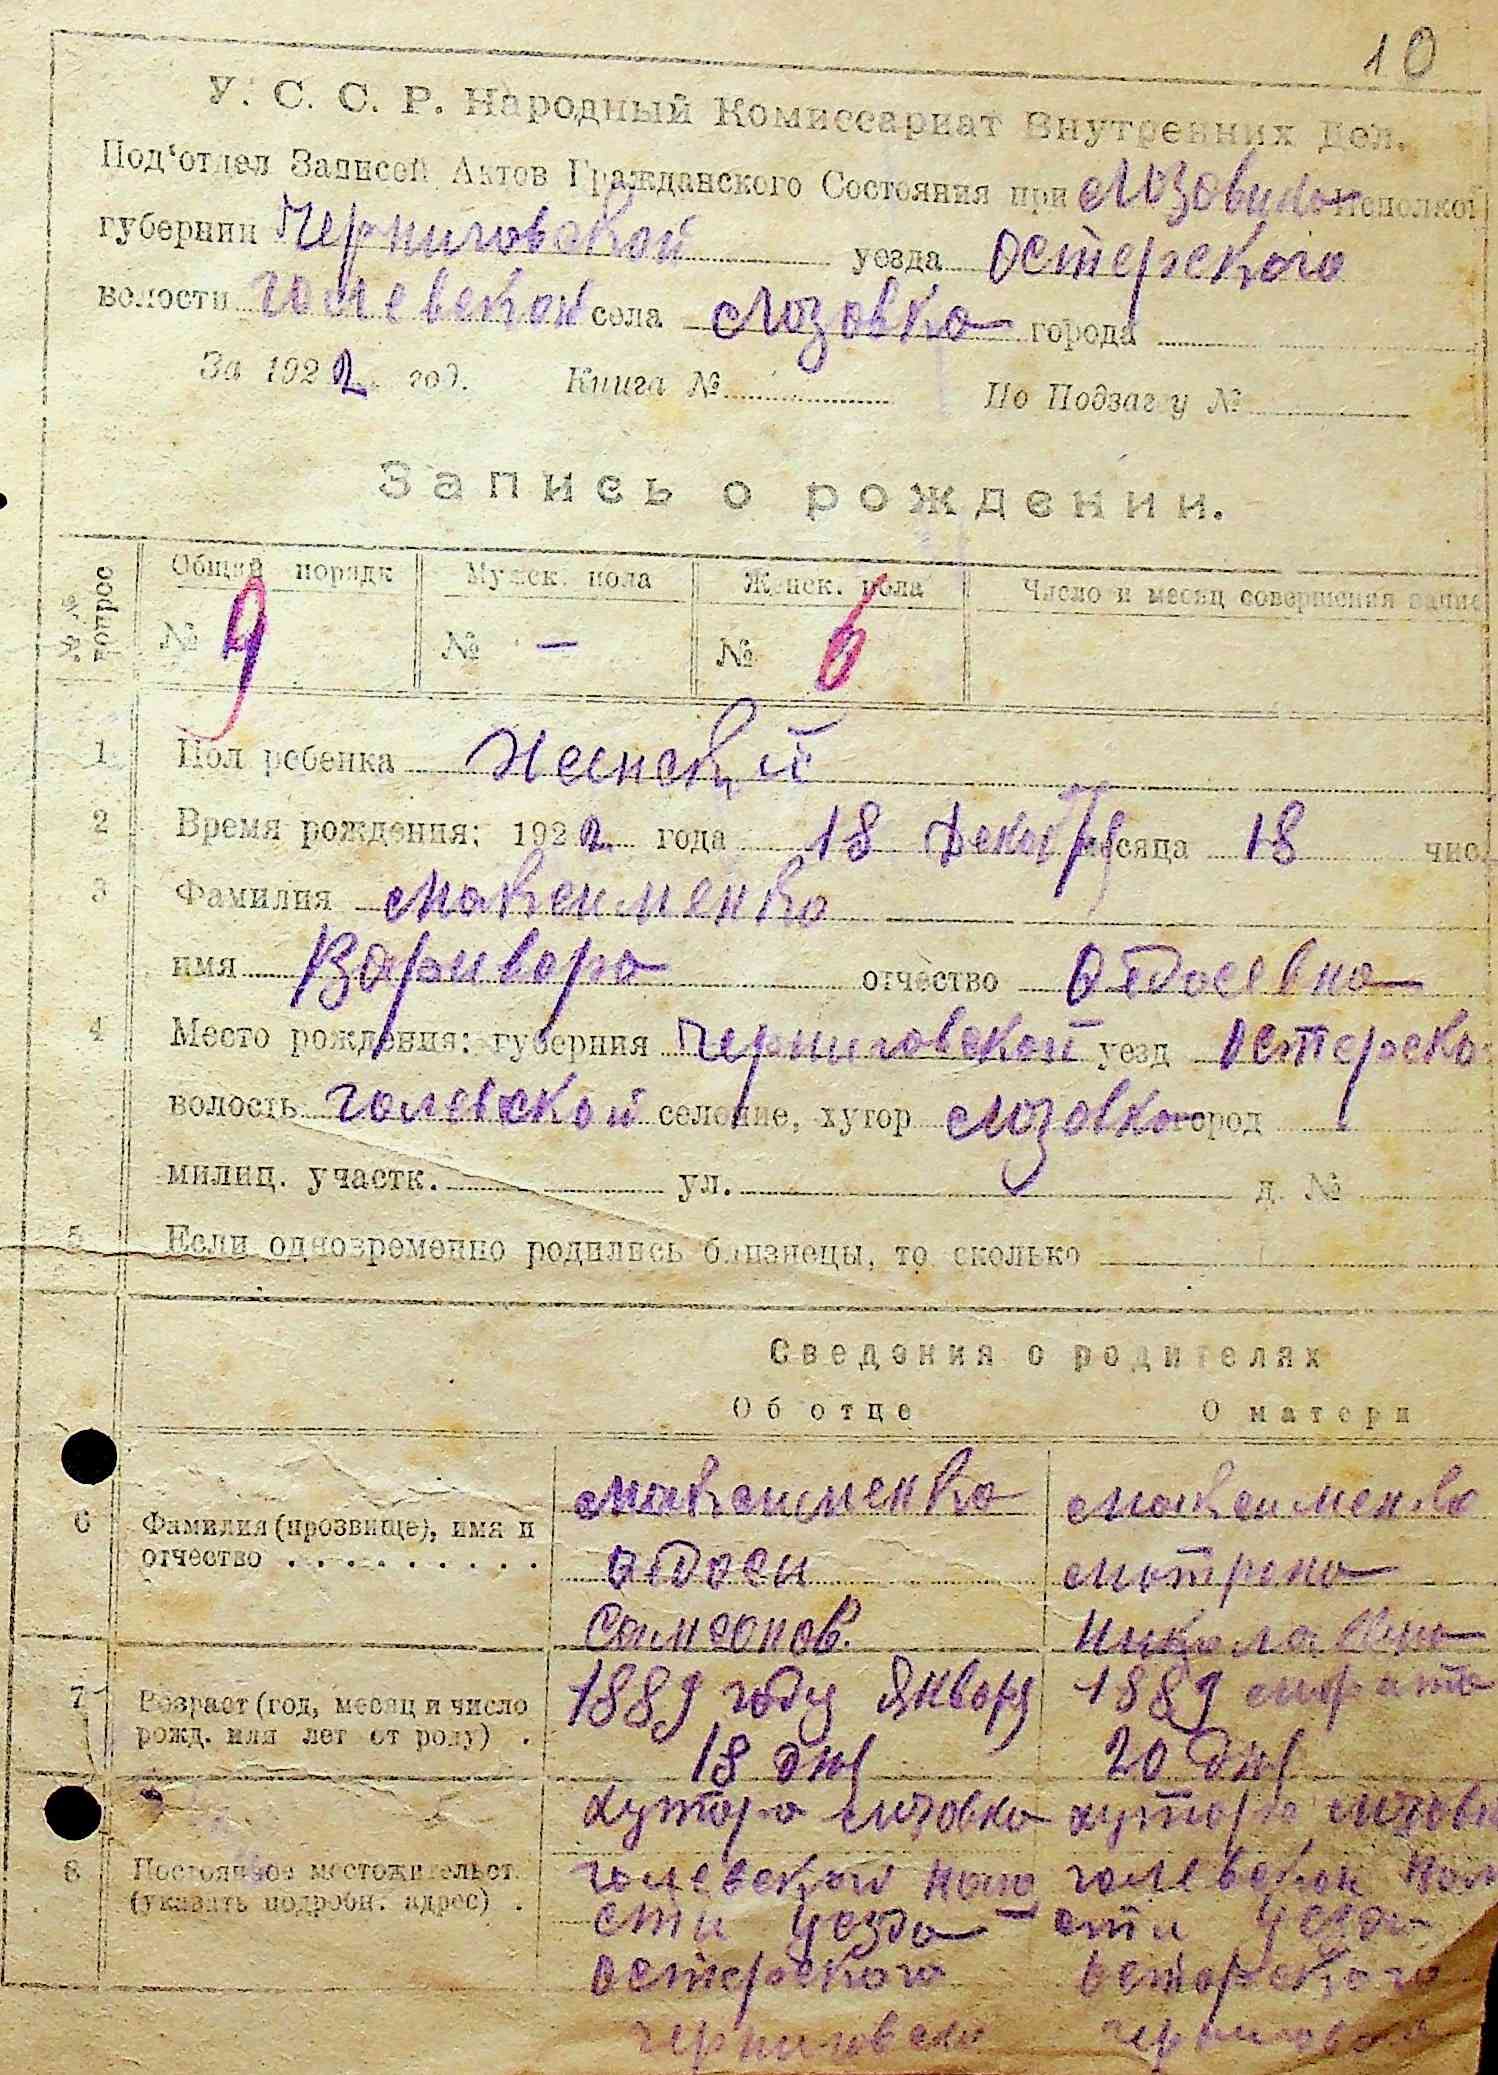 10
У. С. С. Р. Народный Комиссариат Внутренних Дел.
Под'отдел Записей Актов Гражданского Состояния при Исполком
губернии Черниговской уезда Остерского
волости Гомевской села Лозовка города
За 1922 год. Книга № По Подзагу №
Запись о рождении.
№№ вопрос
Общий порядк Мужск. пола Женск. пола Число и месяц совершения запис
№ 9 № — № 6
1 Пол ребенка Женский
2 Время рождения: 1922 года 18 месяца 18 чис
3 Фамилия Максименко
имя Варивара отчество Одосевна
4 Место рождения: губерния Черниговской уезд Остерско
волость селение, хутор Лозовка город
милиц. участк. ул. д. №
5 Если одновременно родились близнецы, то сколько
Сведения о родителях
Об отце О матери
Максименко Максименко
6 Фамилия (прозвище), имя и
отчество . . . . . . . . . Одоси Мотрона
Самсонов.
7 Возраст (год, месяц и число 1889 году Января 1889 марта
рожд. или лет от роду) . 18 дня 20 дня
хутора Лозовка хутора Лозовк
8 Постоянное местожительст.
(указать подробн. адрес) . сти уезда сти уезда
Остерского Остерского